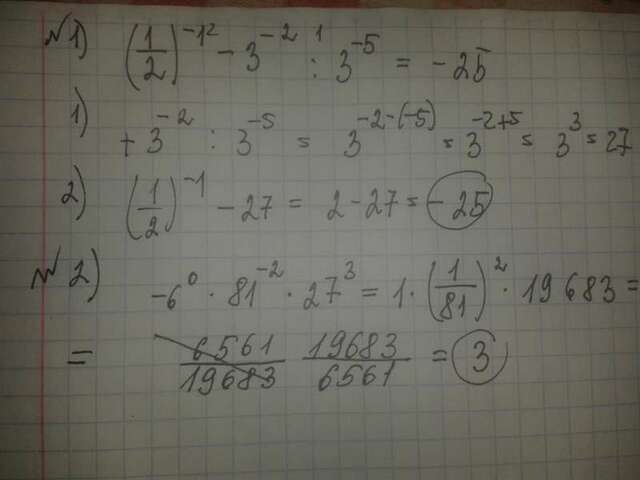 №1) (1/2)^-1² - 3^-2 ¹ : 3^-5 = -25
1) +3^-2 : 3^-5 = 3^-2-(-5) = 3^-2+5 = 3^3 = 27
2) (1/2)^-1 - 27 = 2-27 = -25
№2) -6^0 · 81^-2 · 27^3 = 1 · (1/81)^2 · 19683 =
= 6561/19683 19683/6561 = 3